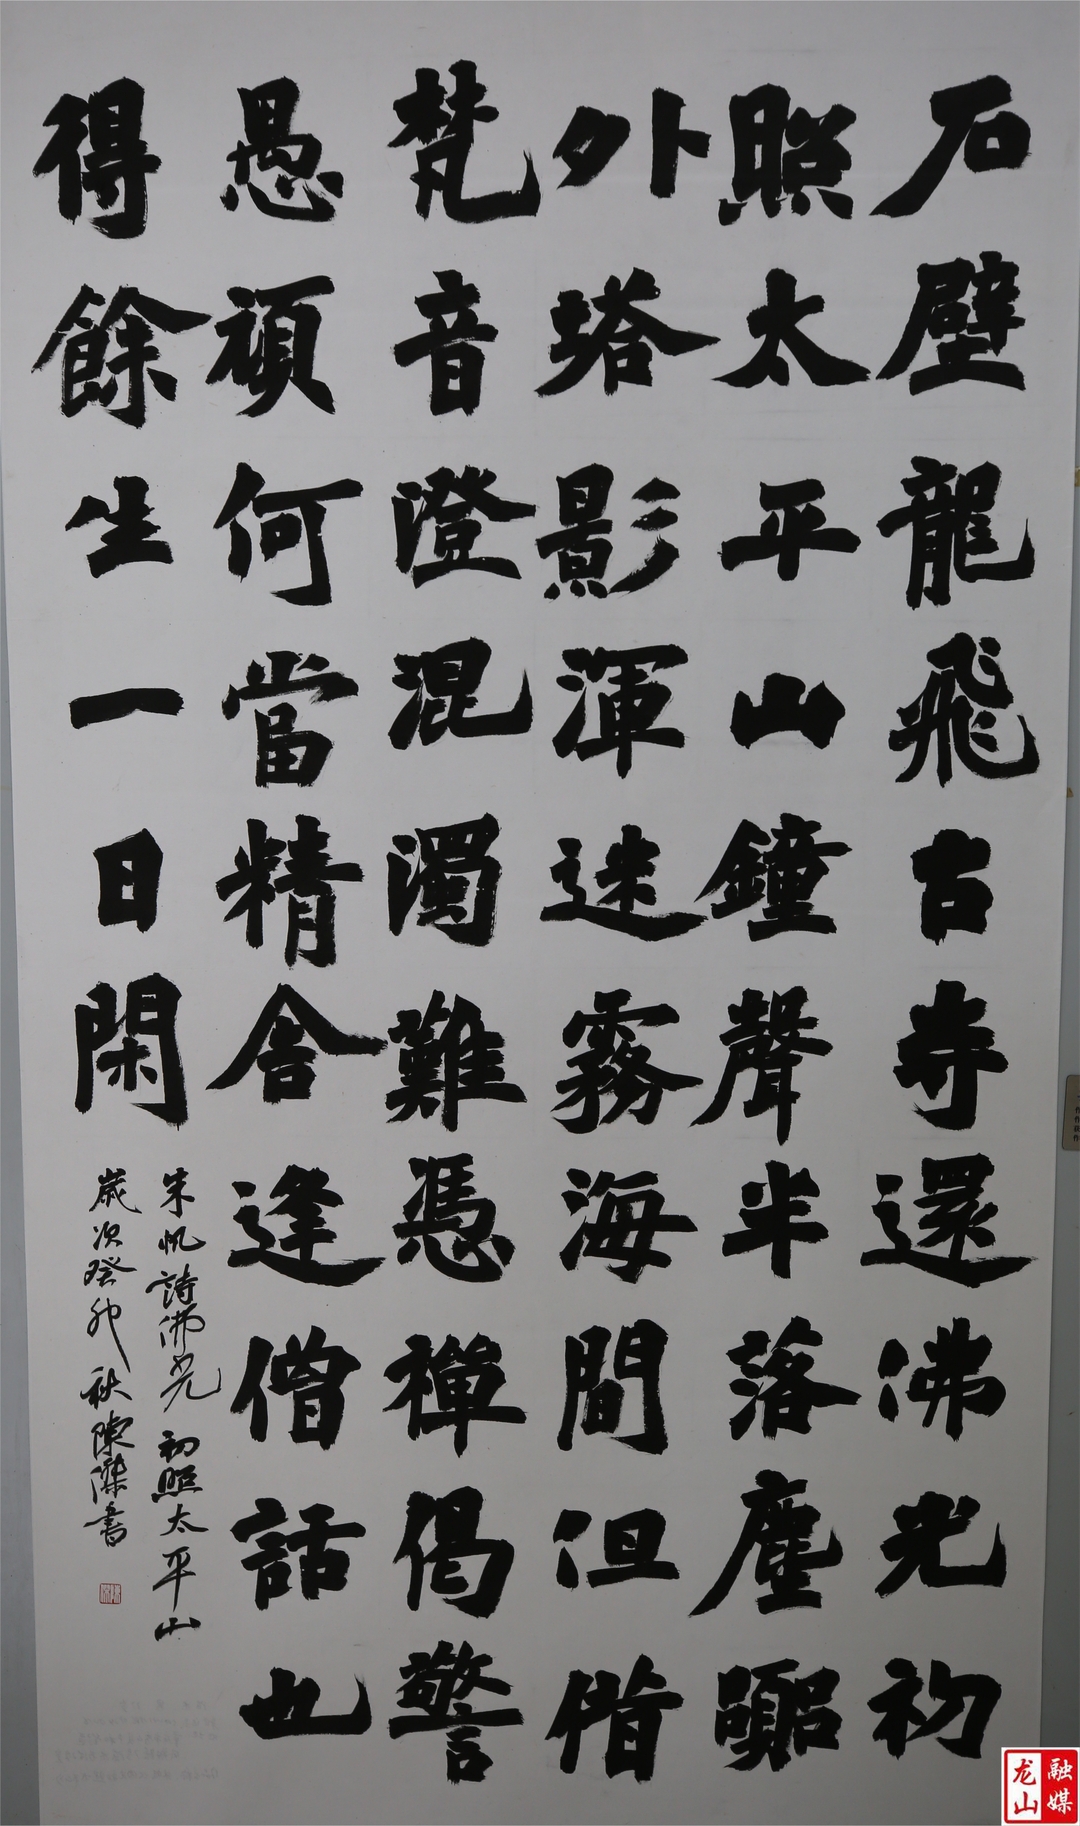 石壁龍飛古寺還佛光初
照太平山鐘聲半落塵囂
外塔影渾迷霧海間但借
梵音澄混濁難憑禪偈警
愚頑何當精舍逢僧話也
得餘生一日閑
朱帆詩佛光初照太平山
歲次癸卯秋陳傑書
龙山
融媒